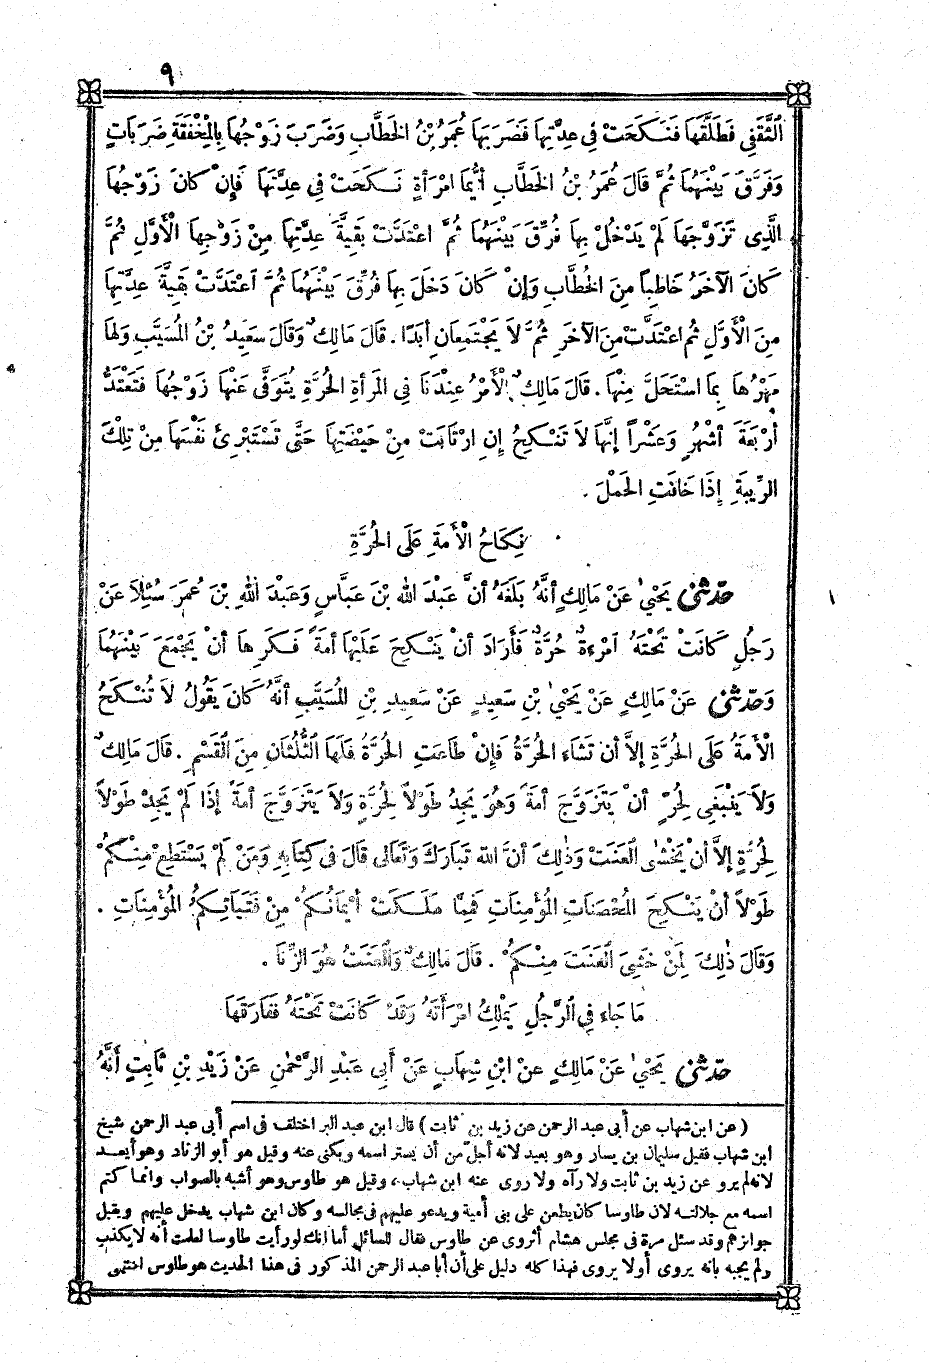 ٩
الثَّقَفِي فَطَلَّقَهَا فَنَكَحَتْ فِي عِدَّتِهَا فَضَرَبَهَا عُمَرُ بْنُ الخَطَّابِ وَضَرَبَ زَوْجَهَا بِالْمِخْفَقَةِ ضَرَبَاتٍ
وَفَرَّقَ بَيْنَهُمَا ثُمَّ قَالَ عُمَرُ بْنُ الخَطَّابِ أَيُّمَا امْرَأَةٍ نَكَحَتْ فِي عِدَّتِهَا فَإِنْ كَانَ زَوْجُهَا
الَّذِى تَزَوَّجَهَا لَمْ يَدْخُلْ بِهَا فُرِّقَ بَيْنَهُمَا ثُمَّ اعْتَدَّتْ بَقِيَّةَ عِدَّتِهَا مِنْ زَوْجِهَا الْأَوَّلِ ثُمَّ
كَانَ الْآخَرُ خَاطِبًا مِنَ الخُطَّابِ وَإِنْ كَانَ دَخَلَ بِهَا فُرِّقَ بَيْنَهُمَا ثُمَّ اعْتَدَّتْ بَقِيَّةَ عِدَّتِهَا
مِنَ الْأَوَّلِ ثُمَّ اعْتَدَّتْ مِنَ الآخَرِ ثُمَّ لَا يَجْتَمِعَانِ أَبَدًا . قَالَ مَالِكٌ وَقَالَ سَعِيدُ بْنُ المُسَيَّبِ وَلَهَا
مَهْرُهَا بِمَا اسْتَحَلَّ مِنْهَا . قَالَ مَالِكٌ الْأَمْرُ عِنْدَنَا فِي المَرْأَةِ الحُرَّةِ يُتَوَفَّى عَنْهَا زَوْجُهَا فَتَعْتَدُّ
أَرْبَعَةَ أَشْهُرٍ وَعَشْرًا إِنَّهَا لَا تَنْكِحُ إِنِ ارْتَابَتْ مِنْ حَيْضَتِهَا حَتَّى تَسْتَبْرِئَ نَفْسَهَا مِنْ تِلْكَ
الرِّيبَةِ إِذَا خَافَتِ الحَمْلَ .
نِكَاحُ الْأَمَةِ عَلَى الحُرَّةِ
حَدَّثَنِي يَحْيَى عَنْ مَالِكٍ أَنَّهُ بَلَغَهُ أَنَّ عَبْدَ اللهِ بْنَ عَبَّاسٍ وَعَبْدَ اللهِ بْنَ عُمَرَ سُئِلَا عَنْ
رَجُلٍ كَانَتْ تَحْتَهُ امْرَءَةٌ حُرَّةٌ فَأَرَادَ أَنْ يَنْكِحَ عَلَيْهَا أَمَةً فَكَرِهَا أَنْ يَجْمَعَ بَيْنَهُمَا
وَحَدَّثَنِي عَنْ مَالِكٍ عَنْ يَحْيَى بْنِ سَعِيدٍ عَنْ سَعِيدِ بْنِ المُسَيَّبِ أَنَّهُ كَانَ يَقُولُ لَا تُنْكَحُ
الْأَمَةُ عَلَى الحُرَّةِ إِلَّا أَنْ تَشَاءَ الحُرَّةُ فَإِنْ طَاعَتِ الحُرَّةُ فَلَهَا الثُّلُثَانِ مِنَ الْقَسْمِ . قَالَ مَالِكٌ
وَلَا يَنْبَغِي لِحُرٍّ أَنْ يَتَزَوَّجَ أَمَةً وَهُوَ يَجِدُ طَوْلًا لِحُرَّةٍ وَلَا يَتَزَوَّجَ أَمَةً إِذَا لَمْ يَجِدْ طَوْلًا
لِحُرَّةٍ إِلَّا أَنْ يَخْشَى الْعَنَتَ وَذٰلِكَ أَنَّ اللهَ تَبَارَكَ وَتَعَالَى قَالَ فِي كِتَابِهِ وَمَنْ لَمْ يَسْتَطِعْ مِنْكُمْ
طَوْلًا أَنْ يَنْكِحَ المُحْصَنَاتِ المُؤْمِنَاتِ فَمِمَّا مَلَكَتْ أَيْمَانُكُمْ مِنْ فَتَيَاتِكُمُ المُؤْمِنَاتِ .
وَقَالَ ذٰلِكَ لِمَنْ خَشِيَ الْعَنَتَ مِنْكُمْ . قَالَ مَالِكٌ وَالْعَنَتُ هُوَ الزِّنَا .
مَا جَاءَ فِي الرَّجُلِ يَمْلِكُ امْرَأَتَهُ وَقَدْ كَانَتْ تَحْتَهُ فَفَارَقَهَا
حَدَّثَنِي يَحْيَى عَنْ مَالِكٍ عَنْ ابْنِ شِهَابٍ عَنْ أَبِي عَبْدِ الرَّحْمٰنِ عَنْ زَيْدِ بْنِ ثَابِتٍ أَنَّهُ
( عن ابن شهاب عن أبى عبد الرحمن عن زيد بن ثابت ) قال ابن عبد البر اختلف فى اسم أبى عبد الرحمن شيخ
ابن شهاب فقيل سليمان بن يسار وهو بعيد لانه أجل من أن يستر اسمه ويكنى عنه وقيل هو أبو الزناد وهو أبعد
لانه لم يرو عن زيد بن ثابت ولا رآه ولا روى عنه ابن شهاب، وقيل هو طاوس وهو أشبه بالصواب وانما كتم
اسمه مع جلالته لان طاوسا كان يطعن على بنى أمية ويدعو عليهم فى مجالسه وكان ابن شهاب يدخل عليهم ويقبل
جوائزهم وقد سئل مرة فى مجلس هشام أتروى عن طاوس فقال للسائل أما انك لو رأيت طاوسا لعلمت أنه لا يكذب
ولم يجبه بانه يروى أولا يروى فهذا كله دليل على أن أبا عبد الرحمن المذكور فى هذا الحديث هو طاوس انتهى